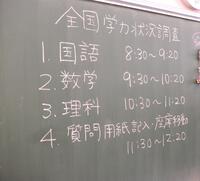 全国学力状況調査
1. 国語 8:30～9:20
2. 数学 9:30～10:20
3. 理科 10:30～11:20
4. 質問用紙記入・座席移動
11:30～12:20